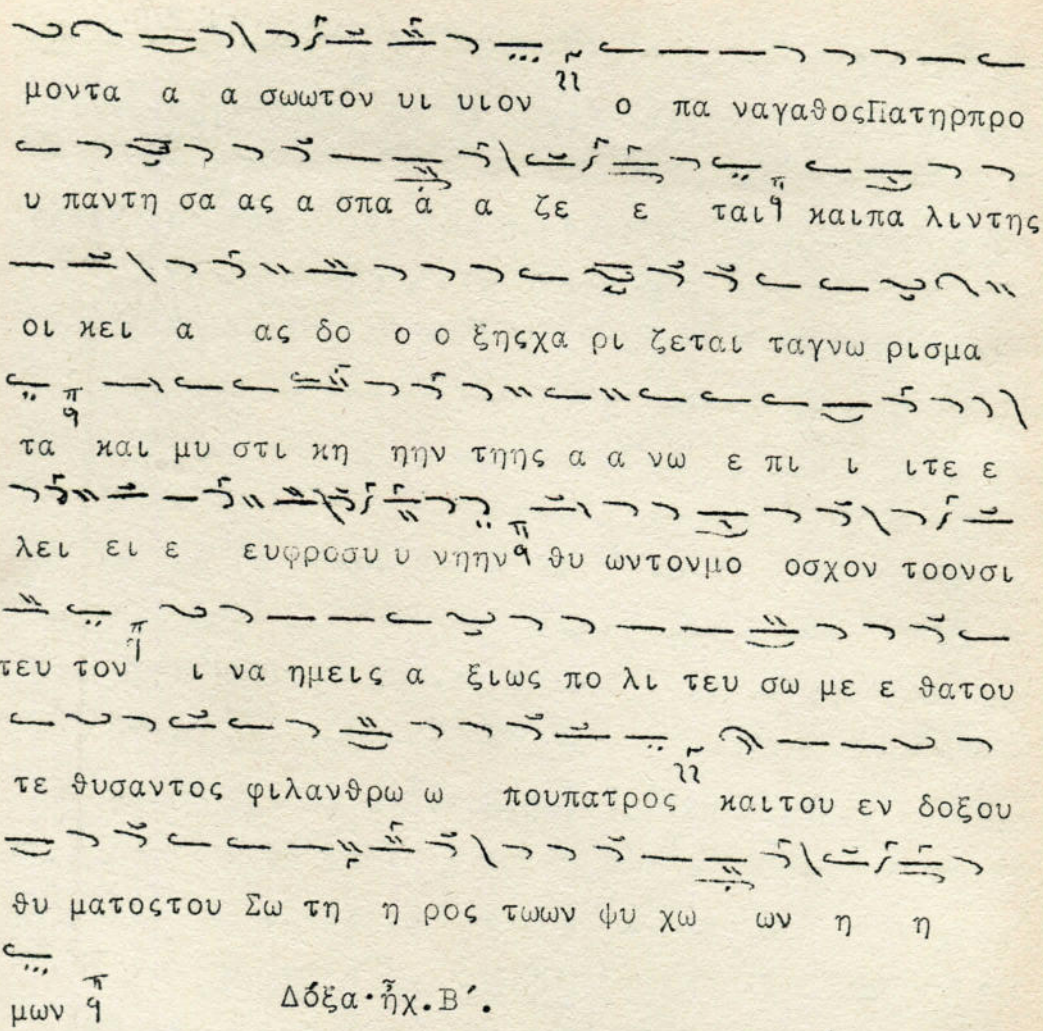 μοντα α α σωωτον υι υιον ο πα ναγαθοςΠατηρπρο
υ παντη σα ας α σπα ά α ζε ε ται καιπα λιντης
οι κει α ας δο ο ο ξηςχα ρι ζεται ταγνω ρισμα
τα και μυ στι κη ηην τηης α α νω ε πι ι ιτε ε
λει ει ε ευφροσυ υ νηην θυ ωντονμο οσχον τοονσι
τευ τον ι να ημεις α ξιως πο λι τευ σω με ε θατου
τε θυσαντος φιλανθρω ω πουπατρος καιτου εν δοξου
θυ ματοςτου Σω τη η ρος τωων ψυ χω ων η η
μων Δόξα·ἦχ.Β΄.